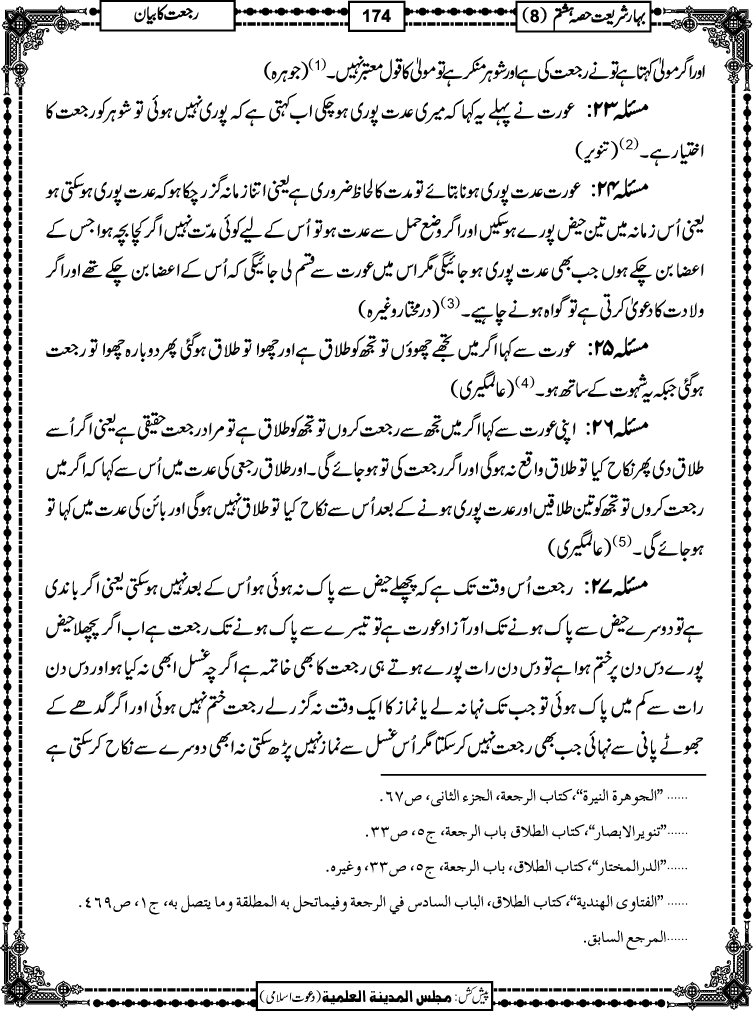 بہارِ شریعت حصہ ہشتم (8)
174
رجعت کا بیان
اور اگر مولیٰ کہتا ہے تو نے رجعت کی ہے اور شوہر منکر ہے تو مولیٰ کا قول معتبر نہیں۔(1) (جوہرہ)
مسئلہ ۲۳: عورت نے پہلے یہ کہا کہ میری عدت پوری ہوچکی اب کہتی ہے کہ پوری نہیں ہوئی تو شوہر کو رجعت کا
اختیار ہے۔(2) (تنویر)
مسئلہ ۲۴: عورت عدت پوری ہونا بتائے تو مدت کا لحاظ ضروری ہے یعنی اتنا زمانہ گزر چکا ہو کہ عدت پوری ہوسکتی ہو
یعنی اُس زمانہ میں تین حیض پورے ہوسکیں اور اگر وضع حمل سے عدت ہو تو اُس کے لیے کوئی مدّت نہیں اگر کچا بچہ ہوا جس کے
اعضا بن چکے ہوں جب بھی عدت پوری ہو جائیگی مگر اس میں عورت سے قسم لی جائیگی کہ اُس کے اعضا بن چکے تھے اور اگر
ولادت کا دعویٰ کرتی ہے تو گواہ ہونے چاہیے۔(3) (درمختار وغیرہ)
مسئلہ ۲۵: عورت سے کہا اگر میں تجھے چھوؤں تو تجھ کو طلاق ہے اور چھوا تو طلاق ہوگئی پھر دوبارہ چھوا تو رجعت
ہوگئی جبکہ یہ شہوت کے ساتھ ہو۔(4) (عالمگیری)
مسئلہ ۲۶: اپنی عورت سے کہا اگر میں تجھ سے رجعت کروں تو تجھ کو طلاق ہے تو مراد رجعت حقیقی ہے یعنی اگر اُسے
طلاق دی پھر نکاح کیا تو طلاق واقع نہ ہوگی اور اگر رجعت کی تو ہو جائے گی۔ اور طلاق رجعی کی عدت میں اُس سے کہا کہ اگر میں
رجعت کروں تو تجھ کو تین طلاقیں اور عدت پوری ہونے کے بعد اُس سے نکاح کیا تو طلاق نہیں ہوگی اور بائن کی عدت میں کہا تو
ہو جائے گی۔(5) (عالمگیری)
مسئلہ ۲۷: رجعت اُس وقت تک ہے کہ پچھلے حیض سے پاک نہ ہوئی ہو اُس کے بعد نہیں ہوسکتی یعنی اگر باندی
ہے تو دوسرے حیض سے پاک ہونے تک اور آزاد عورت ہے تو تیسرے سے پاک ہونے تک رجعت ہے اب اگر پچھلا حیض
پورے دس دن پر ختم ہوا ہے تو دس دن رات پورے ہوتے ہی رجعت کا بھی خاتمہ ہے اگرچہ غسل ابھی نہ کیا ہو اور دس دن
رات سے کم میں پاک ہوئی تو جب تک نہا نہ لے یا نماز کا ایک وقت نہ گزر لے رجعت ختم نہیں ہوئی اور اگر گدھے کے
جھوٹے پانی سے نہائی جب بھی رجعت نہیں کرسکتا مگر اُس غسل سے نماز نہیں پڑھ سکتی نہ ابھی دوسرے سے نکاح کرسکتی ہے
......"الجوهرة النيرة"، كتاب الرجعة، الجزء الثانى، ص٦٧.
......"تنويرالابصار"، كتاب الطلاق باب الرجعة، ج٥، ص٣٣.
......"الدرالمختار"، كتاب الطلاق، باب الرجعة، ج٥، ص٣٣، وغيره.
......"الفتاوى الهندية"، كتاب الطلاق، الباب السادس في الرجعة وفيماتحل به المطلقة وما يتصل به، ج١، ص٤٦٩.
......المرجع السابق.
پیش کش: مجلس المدينة العلمية (دعوت اسلامی)